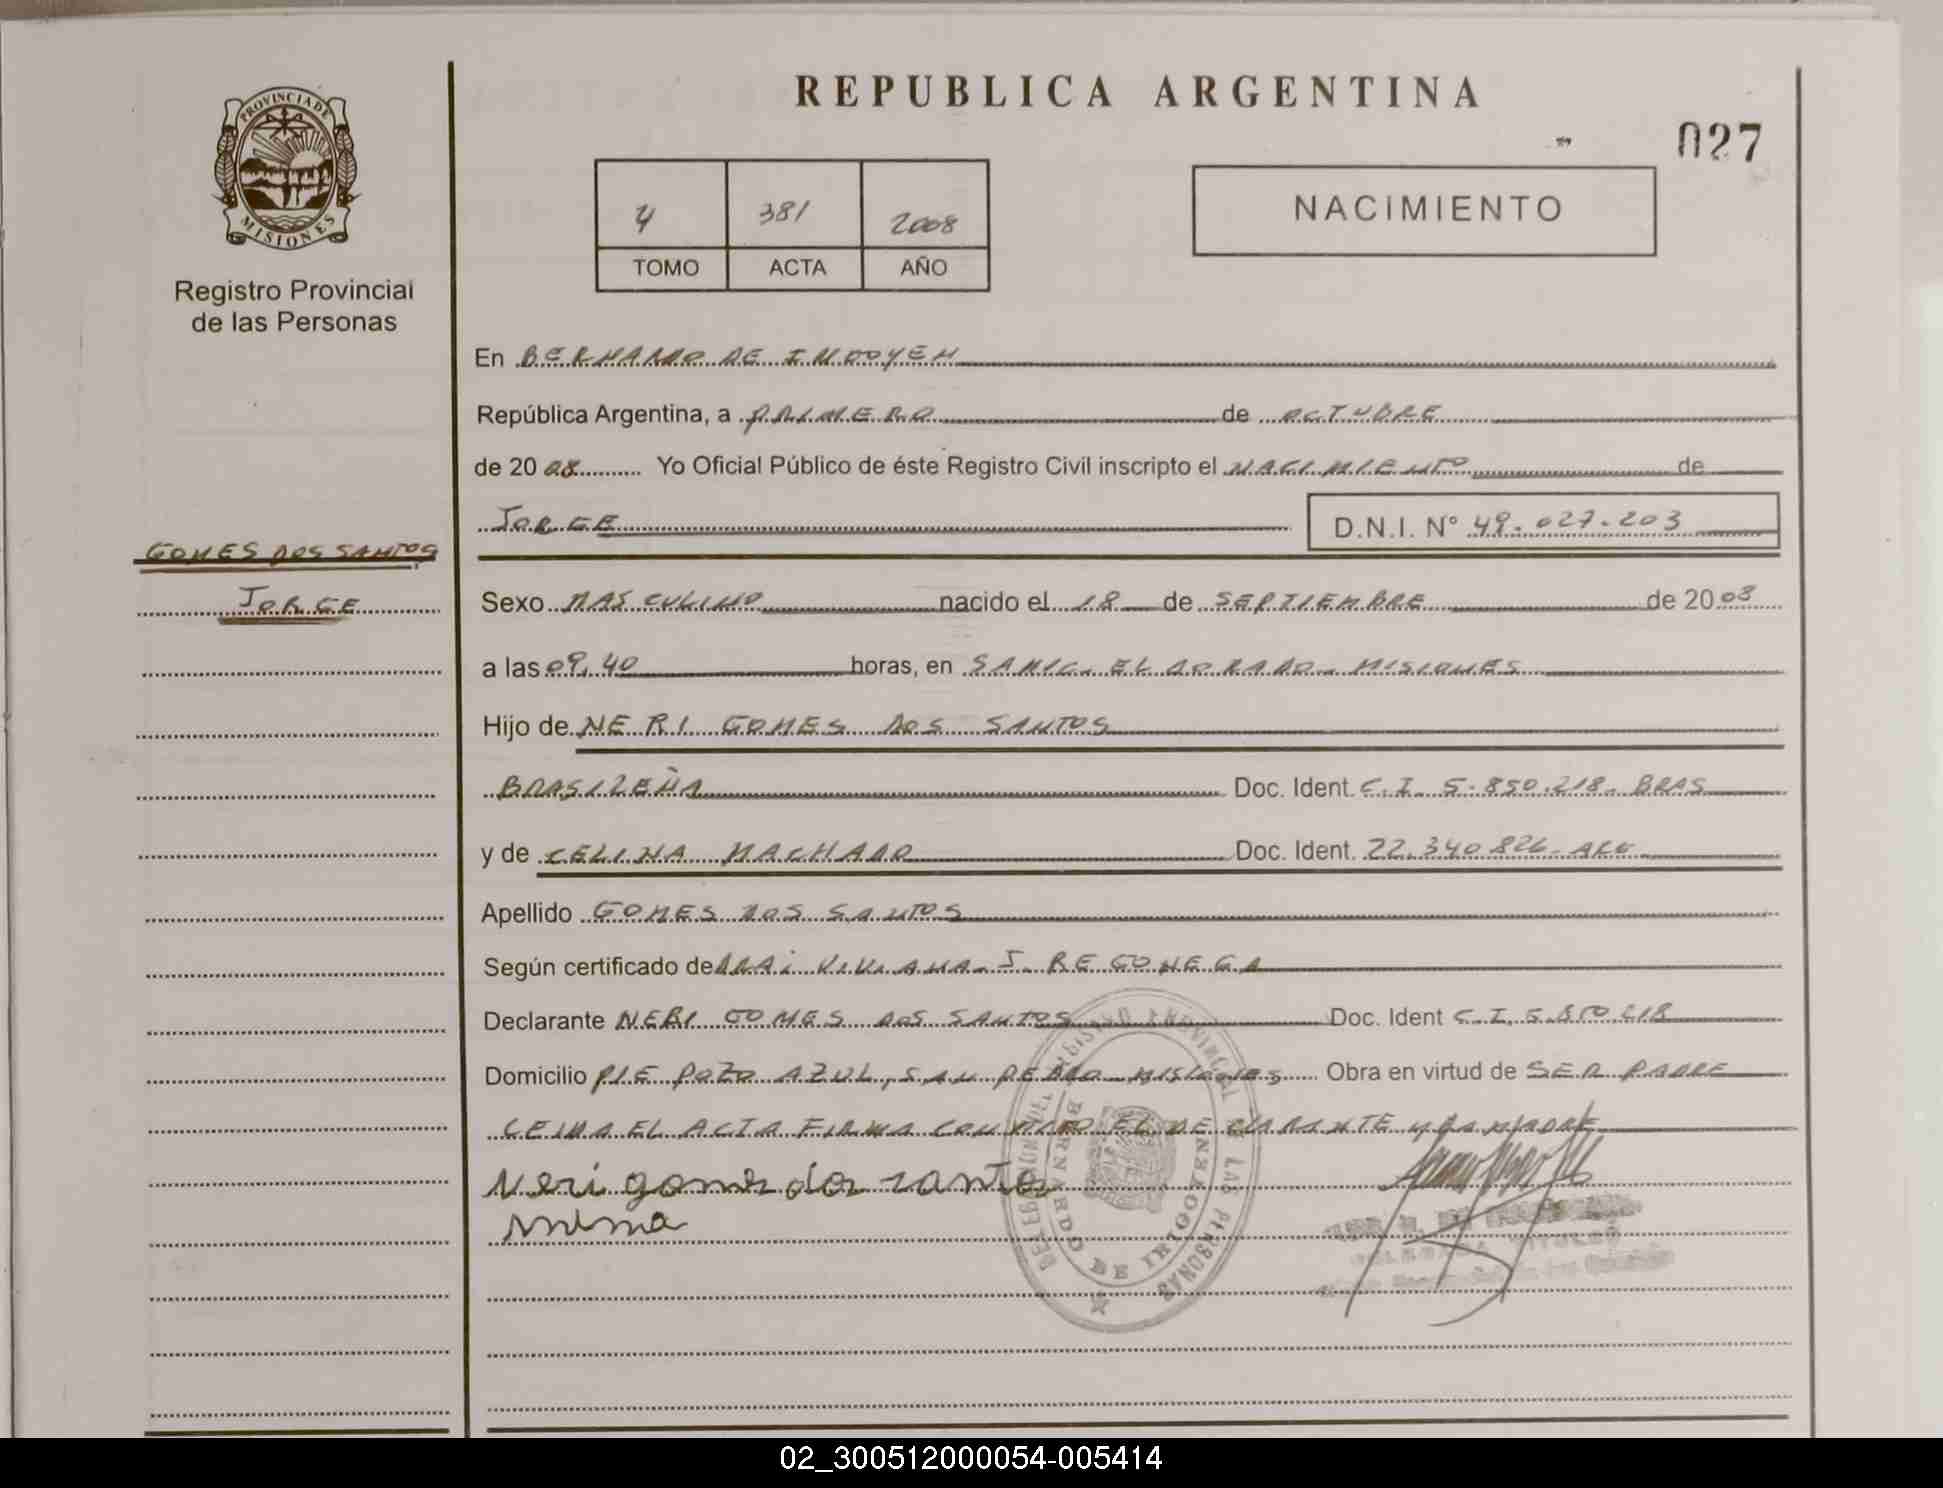 REPUBLICA ARGENTINA
027
PROVINCIA DE
MISIONES
Registro Provincial
de las Personas
4 381 2008
TOMO ACTA AÑO
NACIMIENTO
En BERNARDO DE IRIGOYEN
República Argentina, a PRIMERO de OCTUBRE
de 2008 Yo Oficial Público de éste Registro Civil inscripto el NACIMIENTO de
JORGE D.N.I. N° 49.027.203
GOMES DOS SANTOS
JORGE
Sexo MASCULINO nacido el 18 de SEPTIEMBRE de 2008
a las 09,40 horas, en SAMIC. ELDORADO - MISIONES
Hijo de NERI GOMES DOS SANTOS
BRASILEÑA Doc. Ident. C.I. 5.850.218. BRAS
y de CELINA MACHADO Doc. Ident. 22.340.826 - ARG
Apellido GOMES DOS SANTOS
Según certificado de VIVIANA J.
Declarante NERI GOMES DOS SANTOS Doc. Ident C.I. 5.850.218
Domicilio PJE POZO AZUL, SAN PEDRO MISIONES Obra en virtud de SER PADRE
LEIDA EL ACTA FIRMA CONMIGO EL DECLARANTE Y LA MADRE
Neri gomes dos santos
DELEGACION DEL REGISTRO PROVINCIAL DE LAS PERSONAS
BERNARDO DE IRIGOYEN
02_300512000054-005414